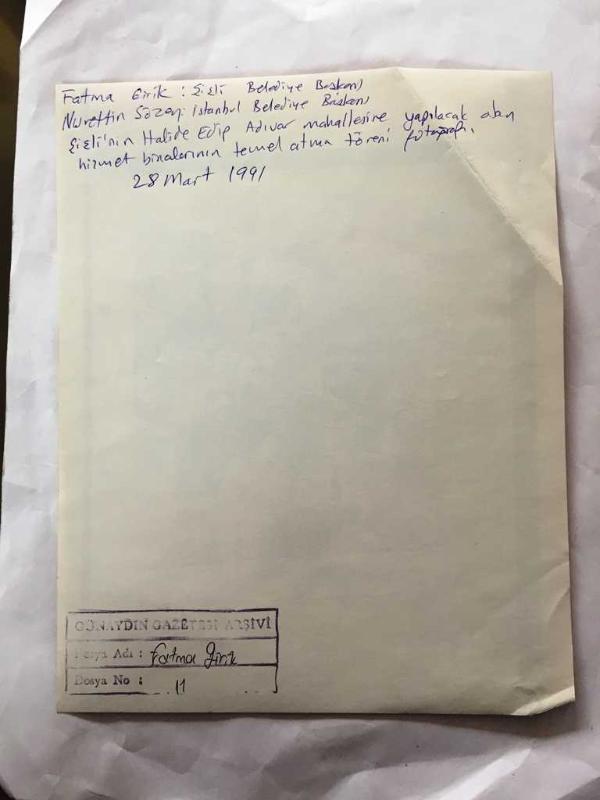 Fatma Girik : Şişli Belediye Başkanı
Nurettin Sözen: İstanbul Belediye Başkanı
Şişli'nin Halide Edip Adıvar mahallesine yapılacak olan
hizmet binalarının temel atma töreni fotoğrafı.
28 Mart 1991
GÜNAYDIN GAZETESİ ARŞİVİ
Dosya Adı : Fatma Girik
Dosya No : 11